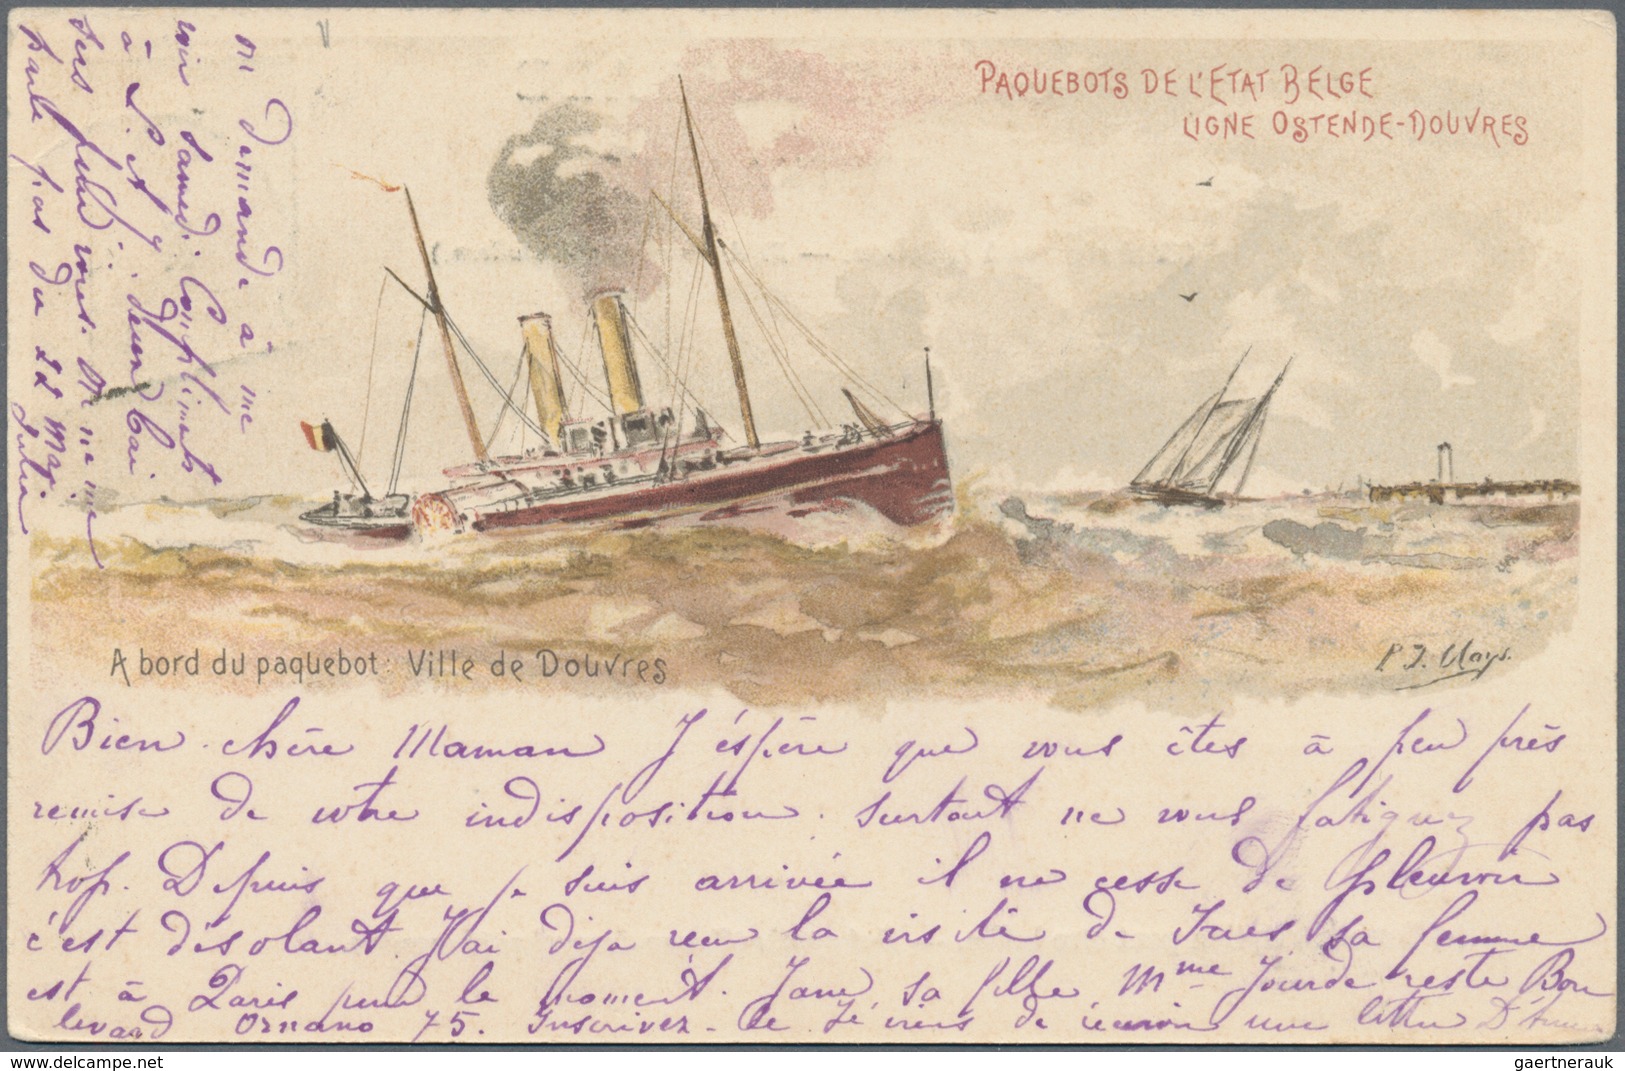 PAQUEBOTS DE L'ETAT BELGE
LIGNE OSTENDE-DOUVRES
A bord du paquebot: Ville de Douvres
P. J. Clays.
Bien chère Maman J'éspère que vous êtes à peu près
remise de votre indisposition. surtout ne vous fatiguez pas
trop. Depuis que je suis arrivée il ne cesse de pleuvoir
c'est désolant. J'ai deja recu la visite de Ives sa femme
est à Paris pour le moment. Jane, sa fille Mme Jourde reste Bou
levard Ornano 75. Inscrivez-le Je viens de recevoir une lettre
on demande à me
voir samedi. Compliments
à
vous. On ne me
parle pas du 22 Mai
Julia
gaertnerauk @ www.delcampe.net